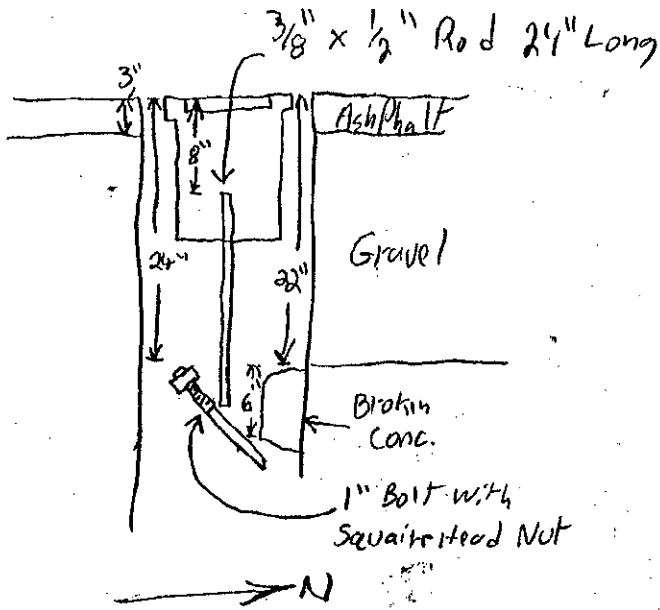 3/8" x 1/2" Rod 24" Long
3"
AshPhalt
8"
Gravel
24"
22"
6"
Brokin
Conc.
1" Bolt with
Squaire Head Nut
N